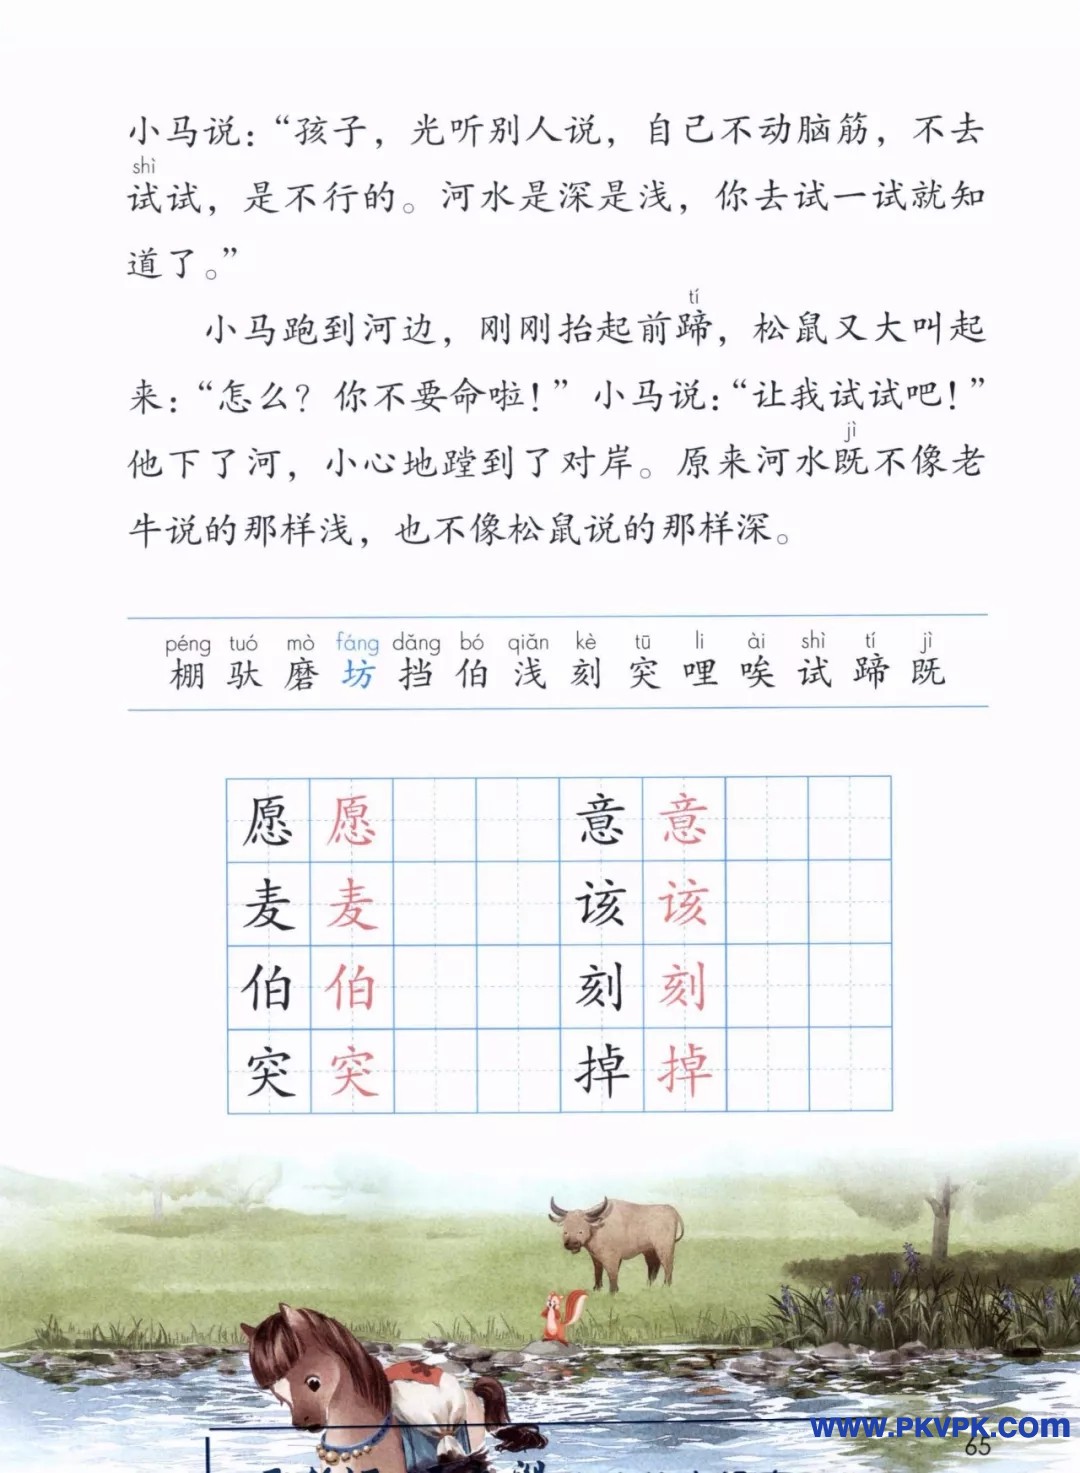 小马说：“孩子，光听别人说，自己不动脑筋，不去
shì
试试，是不行的。河水是深是浅，你去试一试就知
道了。”
tí
小马跑到河边，刚刚抬起前蹄，松鼠又大叫起
来：“怎么？你不要命啦！”小马说：“让我试试吧！”
jì
他下了河，小心地蹚到了对岸。原来河水既不像老
牛说的那样浅，也不像松鼠说的那样深。
péng tuó mò fáng dǎng bó qiǎn kè tū li ài shì tí jì
棚 驮 磨 坊 挡 伯 浅 刻 突 哩 唉 试 蹄 既
愿 愿 意 意
麦 麦 该 该
伯 伯 刻 刻
突 突 掉 掉
www.PKVPK.com
65